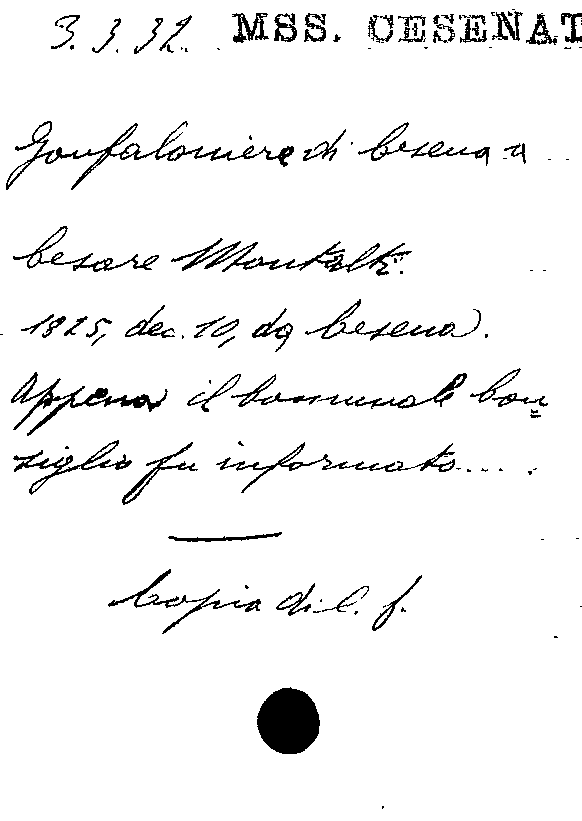 3.3.32. MSS. CESENAT
Gonfaloniere di Cesena a
Cesare Montalti.
1825, dec. 10, da Cesena.
Appena il Comunale Con=
siglio fu informato....
Copia di c. 1.